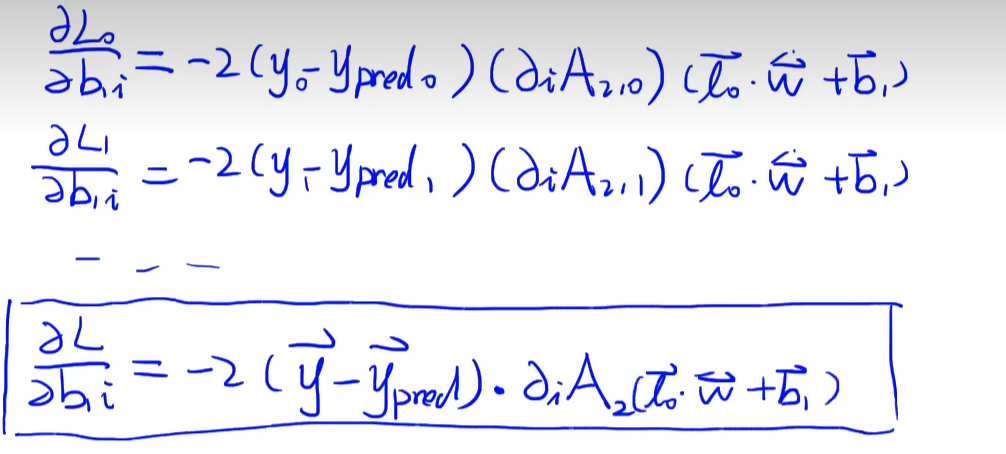 ∂L₀/∂b₁ᵢ = -2(y₀ - y_pred₀)(∂ᵢA₂,₀)(l⃗₀·w⃡ + b⃗₁)
∂L₁/∂b₁ᵢ = -2(y₁ - y_pred₁)(∂ᵢA₂,₁)(l⃗₀·w⃡ + b⃗₁)
- - -
∂L/∂b₁ᵢ = -2(y⃗ - y⃗_pred)·∂ᵢA₂(l⃗₀·w⃡ + b⃗₁)